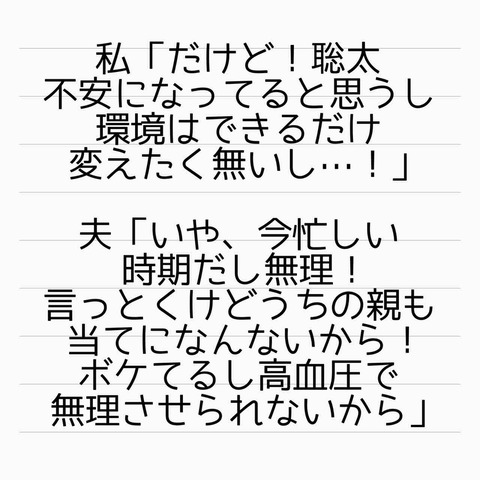 私「だけど！聡太
不安になってると思うし
環境はできるだけ
変えたく無いし…！」
夫「いや、今忙しい
時期だし無理！
言っとくけどうちの親も
当てになんないから！
ボケてるし高血圧で
無理させられないから」